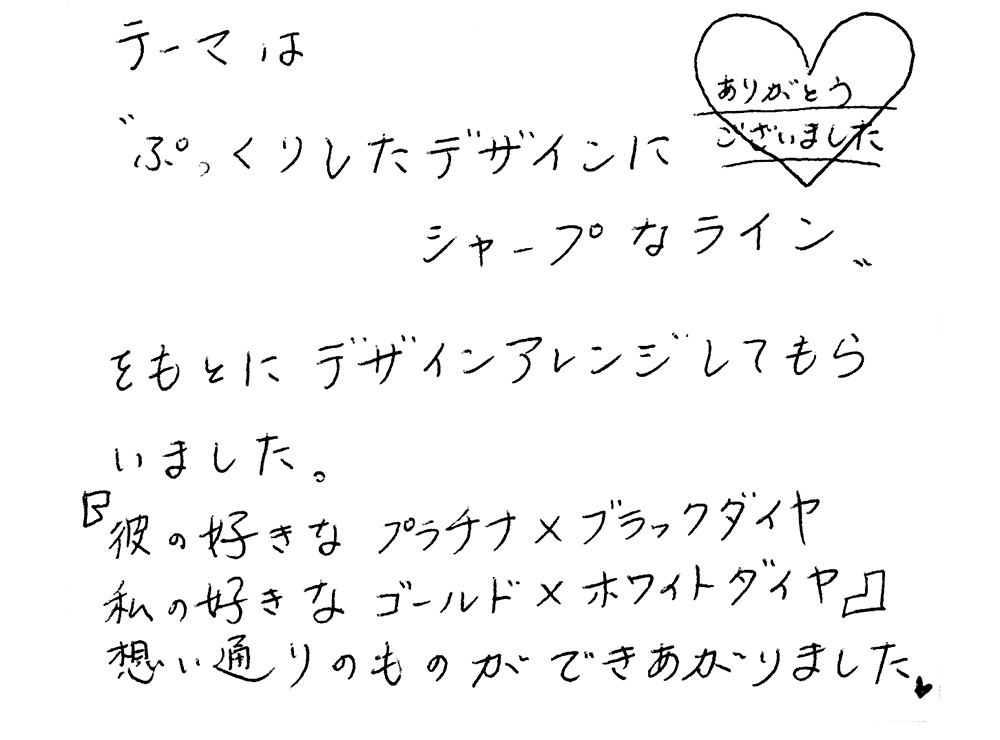 テーマは
ありがとう
ございました
〝ぷっくりしたデザインに
シャープなライン〟
をもとにデザインアレンジしてもら
いました。
『彼の好きな プラチナ×ブラックダイヤ
私の好きな ゴールド×ホワイトダイヤ』
想い通りのものができあがりました♥